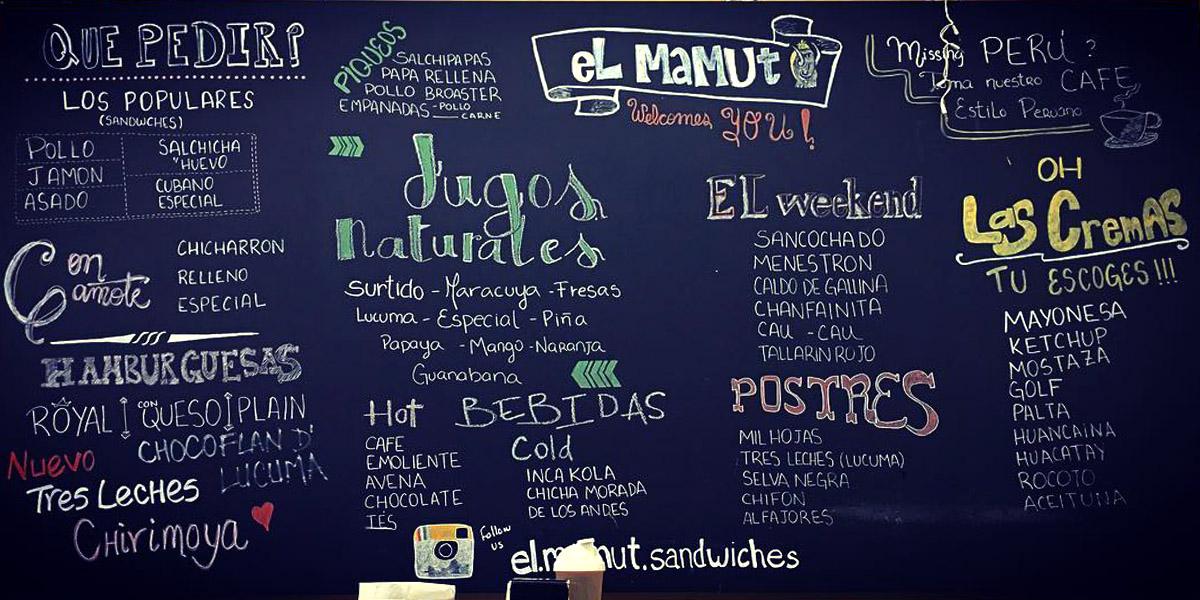 QUE PEDIR?
LOS POPULARES
(SANDWCHES)
POLLO
JAMON
ASADO
SALCHICHA
"HUEVO
CUBANO
ESPECIAL
Con
Camote
CHICHARRON
RELLENO
ESPECIAL
HAMBURGUESAS
ROYAL CON QUESO PLAIN
Nuevo
CHOCOFLAN D'
LUCUMA
TRES LECHES
CHIRIMOYA
PIQUEOS
SALCHIPAPAS
PAPA RELLENA
POLLO BROASTER
EMPANADAS - POLLO
CARNE
Jugos
Naturales
Surtido - Maracuya - Fresas
Lucuma - Especial - Piña
Papaya - Mango - Naranja
Guanabana
Hot BEBIDAS
CAFE
EMOLIENTE
AVENA
CHOCOLATE
TÉS
Cold
INCA KOLA
CHICHA MORADA
DE LOS ANDES
Follow
us
el.mamut.sandwiches
eL MaMUt
Welcomes YOU!
EL weekend
SANCOCHADO
MENESTRON
CALDO DE GALLINA
CHANFAINITA
CAU - CAU
TALLARIN ROJO
POSTRES
MILHOJAS
TRES LECHES (LUCUMA)
SELVA NEGRA
CHIFON
ALFAJORES
Missing PERÚ?
Toma nuestro CAFE
Estilo Peruano
OH
Las CremAS
TU ESCOGES!!!
MAYONESA
KETCHUP
MOSTAZA
GOLF
PALTA
HUANCAINA
HUACATAY
ROCOTO
ACEITUNA